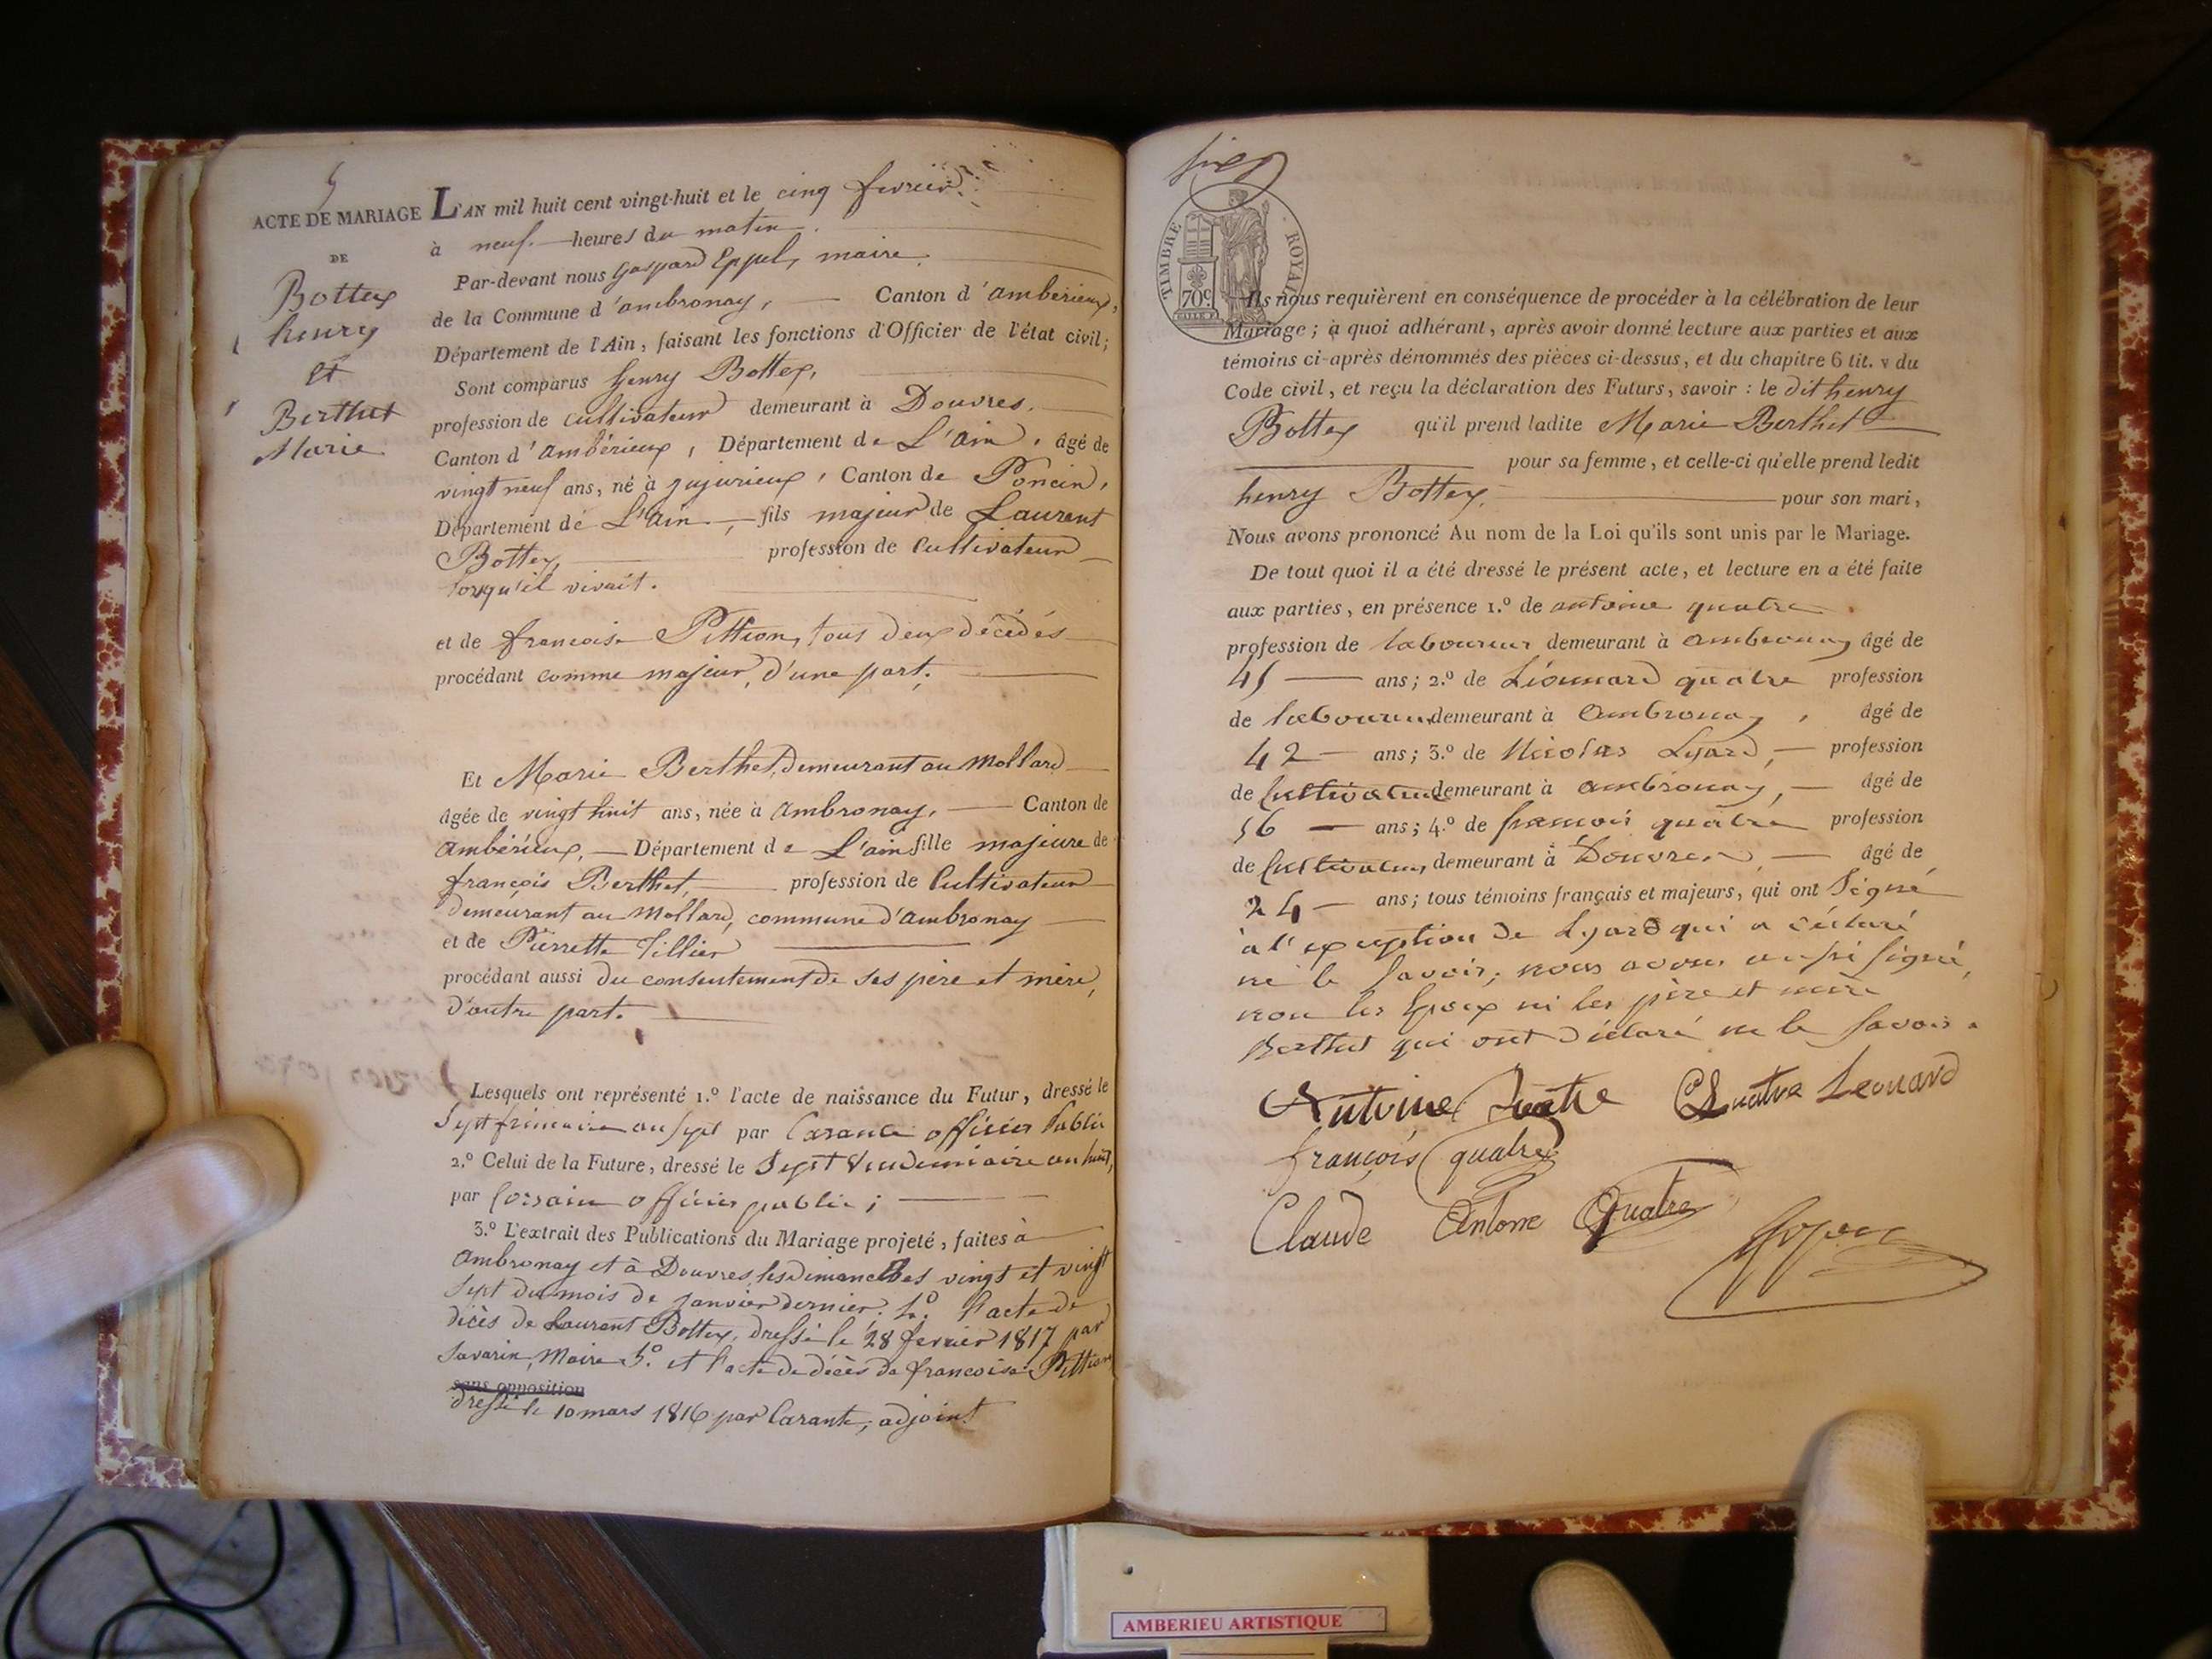 5
ACTE DE MARIAGE
DE
Bottex
henry
et
Berthet
Marie
L'AN mil huit cent vingt-huit et le cinq fevrier.
à neuf heures du matin.
Par-devant nous Gaspard Eppel, maire
de la Commune d'ambronay, Canton d'amberieux,
Département de l'Ain, faisant les fonctions d'Officier de l'état civil;
Sont comparus henry Bottex,
profession de cultivateur demeurant à Douvres.
Canton d'ambérieux, Département de L'ain, âgé de
vingt neuf ans, né à jujurieux, Canton de Poncin,
Département de L'ain, fils majeur de Laurent
Bottex, profession de Cultivateur
lorsqu'il vivait.
et de francoise Pittion, tous deux décédés
procédant comme majeur, d'une part.
Et Marie Berthet, demeurant au Mollard
âgée de vingt huit ans, née à ambronay, Canton de
ambérieux, Département de L'ain fille majeure de
françois Berthet, profession de Cultivateur
demeurant au Mollard, commune d'ambronay
et de Pierrette Tillier
procédant aussi du consentement de ses père et mère,
d'autre part.
Lesquels ont représenté 1.º l'acte de naissance du Futur, dressé le
Sept frimaire an sept par Carante officier Public
2.º Celui de la Future, dressé le Sept Vendemiaire an huit,
par officier public;
3.º L'extrait des Publications du Mariage projeté, faites à
ambronay et à Douvres, les dimanches vingt et vingt
sept du mois de janvier dernier. 4.º l'acte de
décès de Laurent Bottex, dressé le 28 fevrier 1817 par
Savarin, Maire 5.º et l'acte de décès de francoise Pittion
sans opposition
dressé le 10 mars 1816 par Carante, adjoint
TIMBRE ROYAL
70 c.
Ils nous requièrent en conséquence de procéder à la célébration de leur
Mariage; à quoi adhérant, après avoir donné lecture aux parties et aux
témoins ci-après dénommés des pièces ci-dessus, et du chapitre 6 tit. v du
Code civil, et reçu la déclaration des Futurs, savoir: le dit henry
Bottex qu'il prend ladite Marie Berthet
pour sa femme, et celle-ci qu'elle prend ledit
henry Bottex, pour son mari,
Nous avons prononcé Au nom de la Loi qu'ils sont unis par le Mariage.
De tout quoi il a été dressé le présent acte, et lecture en a été faite
aux parties, en présence 1.º de antoine quatre
profession de laboureur demeurant à ambronay âgé de
45 ans; 2.º de Léonnard quatre profession
de laboureur demeurant à ambronay, âgé de
42 ans; 3.º de Nicolas Lyard, profession
de Cultivateur demeurant à ambronay, âgé de
56 ans; 4.º de francois quatre profession
de Cultivateur demeurant à Douvres âgé de
24 ans; tous témoins français et majeurs, qui ont Signé
à l'exception de Lyard qui a déclaré
ne le savoir, nous avons aussi signé,
non les Epoux ni les père et mere
Berthet qui ont déclaré ne le savoir.
Antoine Quatre Quatre Leonard
françois quatre
Claude Antoine Quatre
AMBERIEU ARTISTIQUE